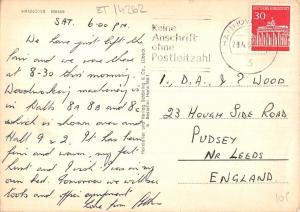 HANNOVER MESSE
ET 14262
SAT. 6:00 p.m.
We have just left the
fair and we were there
at 8-30 this morning.
Woodworking machinery is
in Halls 8A 8B and 8C
which is shown area and
Hall 9 & 2. It has been
fine and warm, my feet
hot and I wish I was in my
own bed. Tomorrow we will see
tools and office equipment.
Love from
Keine
Anschrift
ohne
Postleitzahl
HANNOVER
28.4.
DEUTSCHE BUNDESPOST
30
I., D.A., & J? WOOD
23 HOUGH SIDE ROAD
PUDSEY
NR LEEDS
ENGLAND.